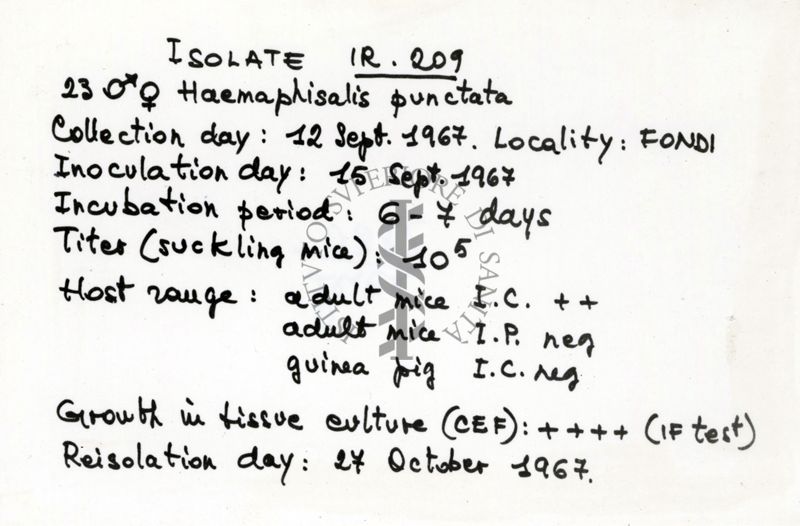 ISOLATE IR. 209
23 ♂♀ Haemaphisalis punctata
Collection day: 12 Sept. 1967. Locality: FONDI
Inoculation day: 15 Sept. 1967
Incubation period: 6-7 days
Titer (suckling mice): 10⁵
Host range: adult mice I.C. ++
adult mice I.P. neg
guinea pig I.C. neg
Growth in tissue culture (CEF): ++++ (IF test)
Reisolation day: 27 October 1967.
ISTITUTO SUPERIORE DI SANITÀ